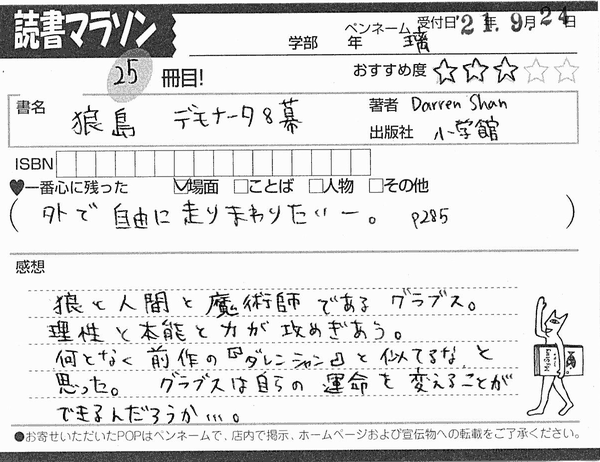 読書マラソン
学部 年 ペンネーム 璃 受付日'21年9月24日
25冊目!
おすすめ度 ★★★☆☆
書名 狼島 デモナータ8幕
著者 Darren Shan
出版社 小学館
ISBN
♥一番心に残った ☑場面 □ことば □人物 □その他
(外で自由に走りまわりたいー。 p285)
感想
狼と人間と魔術師であるグラブス。
理性と本能と力が攻めぎあう。
何となく前作の『ダレンシャン』と似てるな、と
思った。 グラブスは自らの運命を変えることが
できるんだろうか…。
●お寄せいただいたPOPはペンネームで、店内で掲示、ホームページおよび宣伝物への転載をご了承ください。